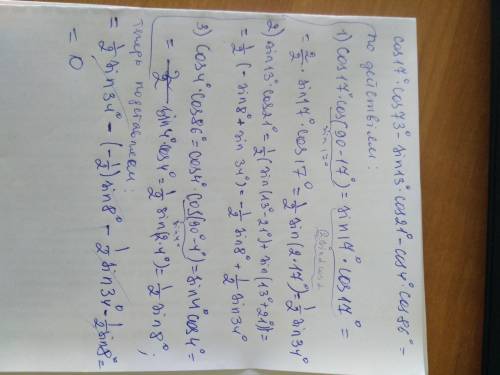 cos17°·cos73°-sin13°·cos21°-cos4°·cos86°=
по действиям:
1) cos17°·cos(90-17°)=sin17°·cos17°=
sin17°
2sinαcosα
=2/2·sin17°·cos17°=1/2sin(2·17°)=1/2sin34°
2) sin13°·cos21°=1/2(sin(13°-21°)+sin(13°+21°))=
=1/2(-sin8°+sin34°)=-1/2sin8°+1/2sin34°
3) cos4°·cos86°=cos4°·cos(90°-4°)=sin4°cos4°=
sin4°
=sin4°cos4°=1/2sin(2·4°)=1/2sin8°;
теперь подставляем:
=1/2sin34°-(-1/2)sin8°-1/2sin34°-1/2sin8°=
=0